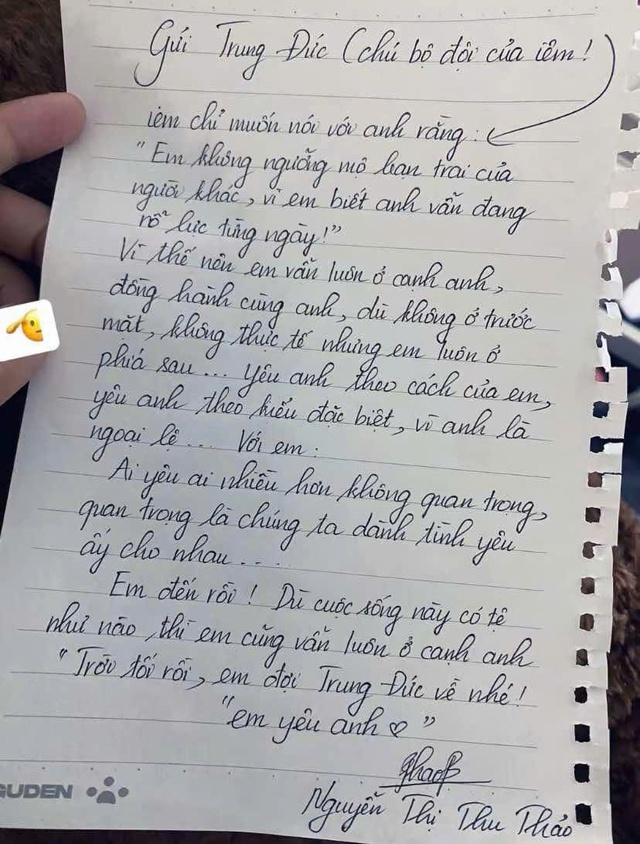 Gửi Trung Đức (chú bộ đội của iêm!
iêm chỉ muốn nói với anh rằng:
"Em không ngưỡng mộ bạn trai của
người khác, vì em biết anh vẫn đang
nỗ lực từng ngày!"
Vì thế nên em vẫn luôn ở cạnh anh,
đồng hành cùng anh, dù không ở trước
mặt, không thực tế nhưng em luôn ở
phiá sau... yêu anh theo cách của em,
yêu anh theo kiểu đặc biệt, vì anh là
ngoại lệ... Với em.
Ai yêu ai nhiều hơn không quan trọng,
quan trọng là chúng ta dành tình yêu
ấy cho nhau....
Em đến rồi! Dù cuộc sống này có tệ
như nào thì em cũng vẫn luôn ở cạnh anh
"Trời tối rồi, em đợi Trung Đức về nhé!
"em yêu anh ♡"
Nguyễn Thị Thu Thảo
GUDEN